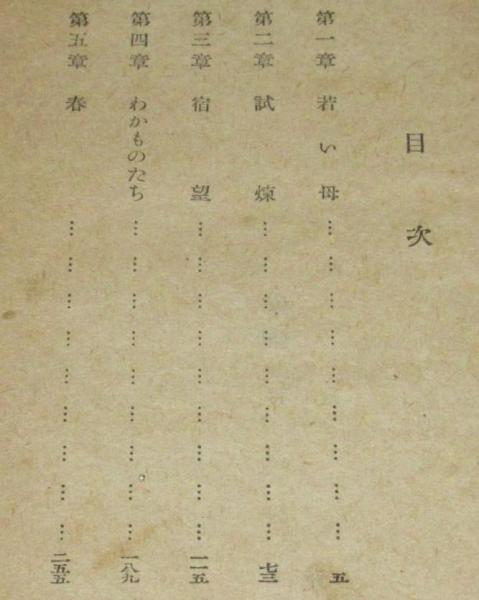 目次
第一章 若い母…………………………五
第二章 試煉…………………………七三
第三章 宿望…………………………一一五
第四章 わかものたち…………………………一八九
第五章 春…………………………二五五